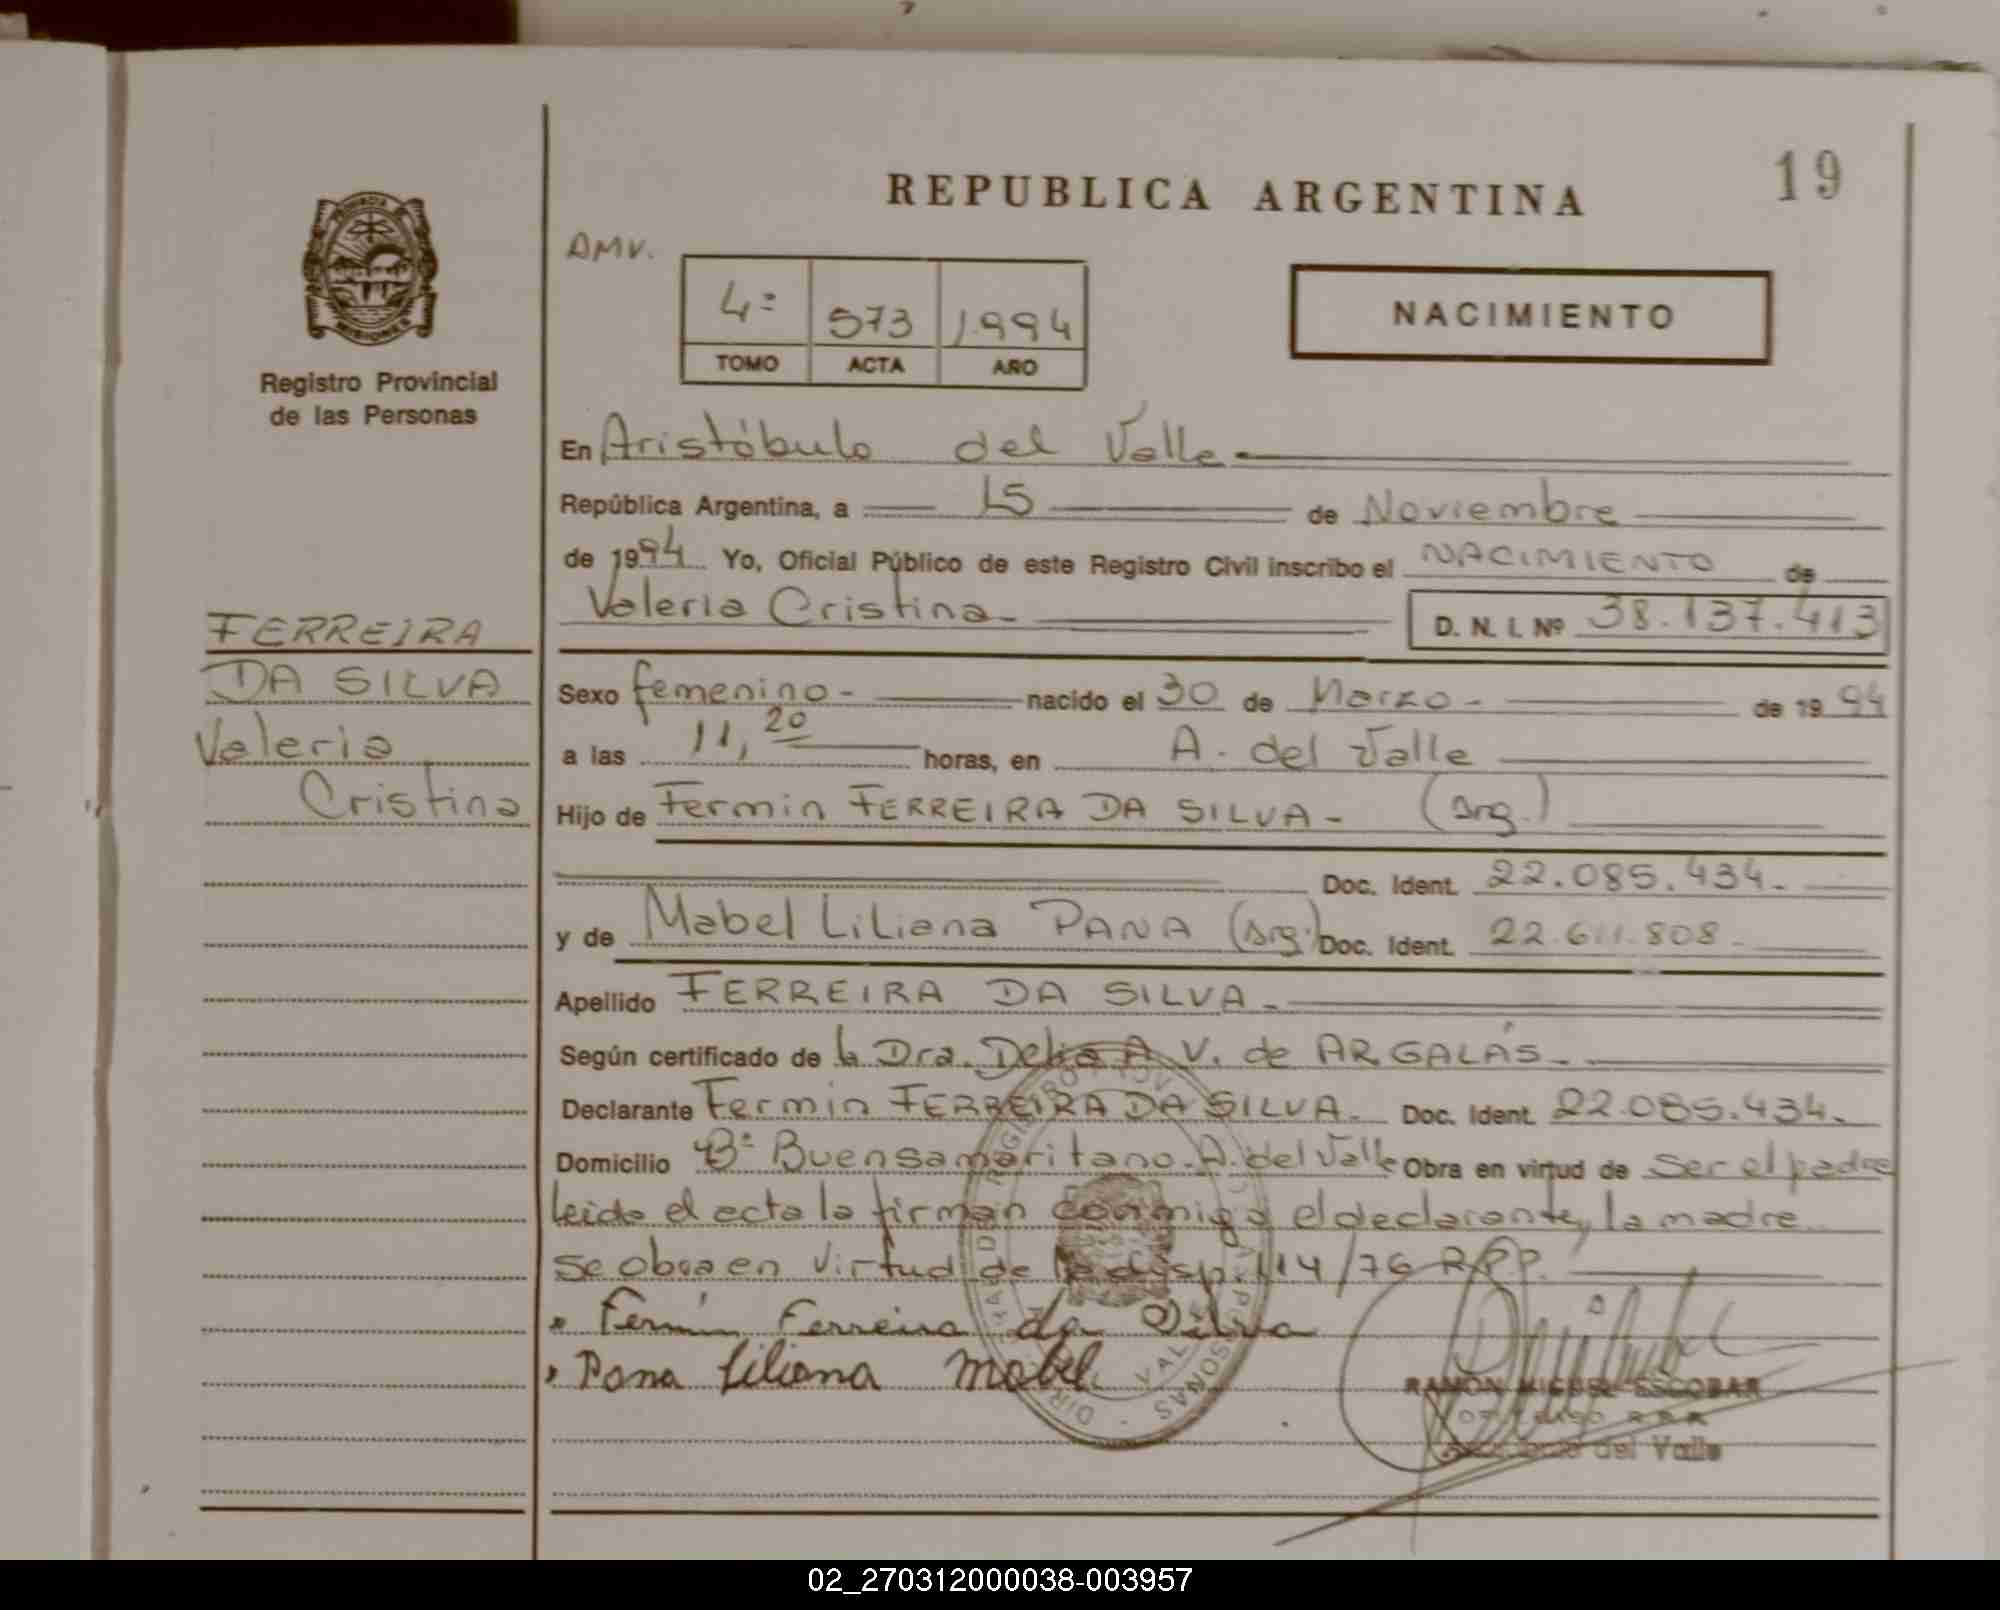 REPUBLICA ARGENTINA
19
AMV.
4º 573 1.994
TOMO ACTA AÑO
NACIMIENTO
PROVINCIA
MISIONES
Registro Provincial
de las Personas
FERREIRA
DA SILVA
Valeria
Cristina
En Aristóbulo del Valle
República Argentina, a 15 de Noviembre
de 1994 Yo, Oficial Público de este Registro Civil inscribo el NACIMIENTO de
Valeria Cristina - D. N. I. Nº 38.137.413
Sexo femenino - nacido el 30 de Marzo - de 1994
a las 11,20 horas, en A. del Valle
Hijo de Fermin FERREIRA DA SILVA - (arg.)
Doc. Ident. 22.085.434.
y de Mabel Liliana PANA (arg.) Doc. Ident. 22.611.808.
Apellido FERREIRA DA SILVA -
Según certificado de la Dra. Delia A V. de ARGALÁS -
Declarante Fermin FERREIRA DA SILVA. Doc. Ident. 22.085.434.
Domicilio Bº Buensamaritano. A. del Valle Obra en virtud de ser el padre
leida el acta la firman conmigo el declarante, la madre
se obra en virtud de la disp. 114/76 R.P.P.
Fermín Ferreira da Silva
Pana Liliana Mabel
RAMON MIGUEL ESCOBAR
del Valle
02_270312000038-003957